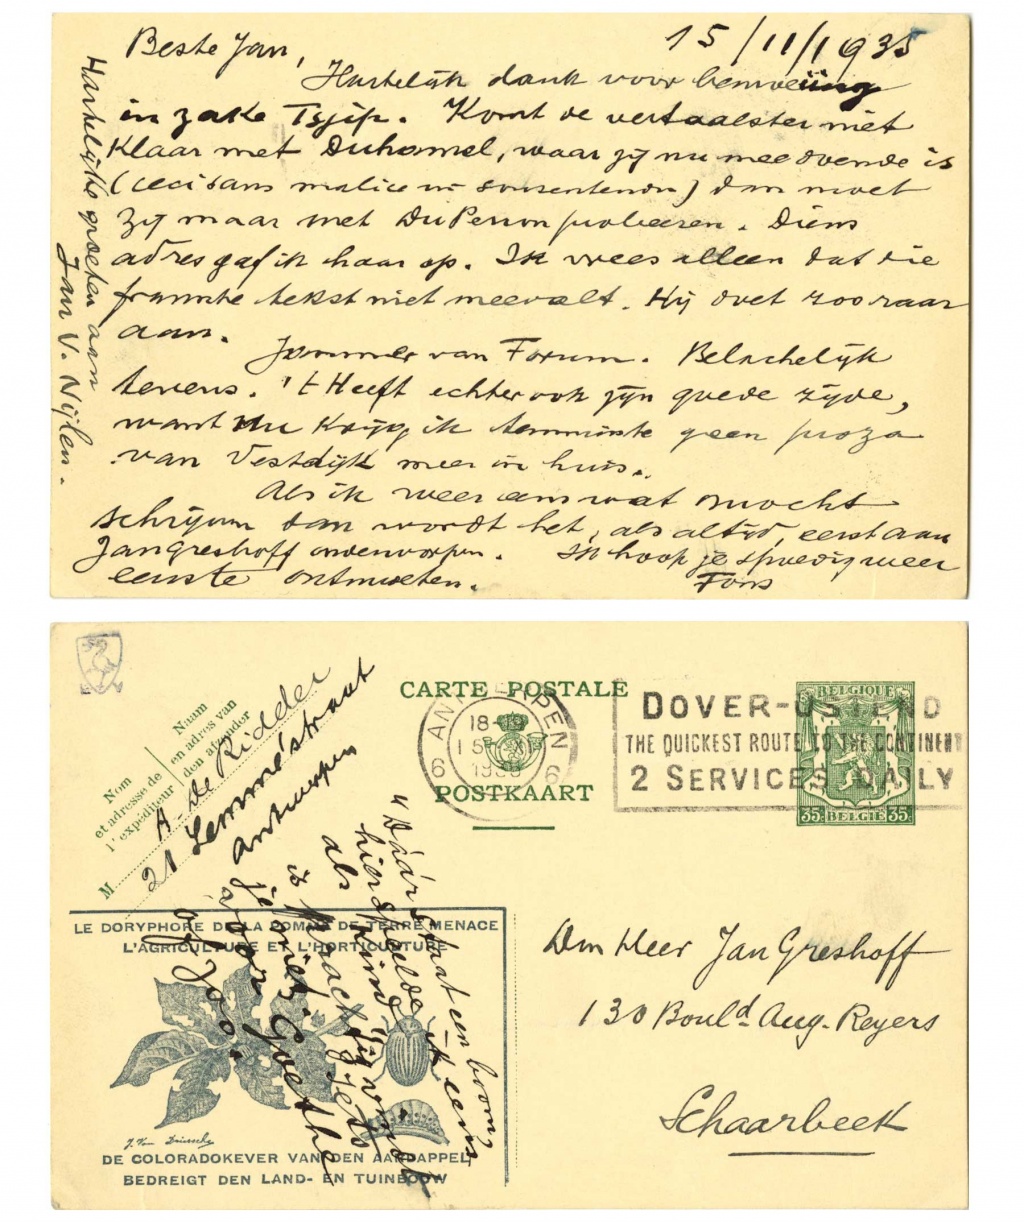 Beste Jan,
15/11/1935
Hartelijk dank voor bemoeiing
in zake Tsjip. Komt de vertaalster niet
klaar met Duhamel, waar zij nu mee doende is
(ceci sans malice ni sousentendu) dan moet
zij maar met Du Perron probeeren. Diens
adres gaf ik haar op. Ik vrees alleen dat die
fransche tekst niet meevalt. Hij doet zoo raar
aan.
Jammer van Forum. Belachelijk
tevens. 't Heeft echter ook zijn goede zijde,
want nu krijg ik tenminste geen proza
van Vestdijk meer in huis.
Als ik weer eens wat mocht
schrijven dan wordt het, als altijd, eerst aan
Jan Greshoff onderworpen. Ik hoop je spoedig weer
eens te ontmoeten.
Fons
Hartelijke groeten aan
Jan V. Nijlen.
CARTE POSTALE
POSTKAART
ANTWERPEN
18-19
15 XI
6 6
DOVER-OSTEND
THE QUICKEST ROUTE TO THE CONTINENT
2 SERVICES DAILY
BELGIQUE
35 BELGIE 35
Nom
et adresse de
l'expéditeur
Naam
en adres van
den afzender
M
A. De Ridder
21 Lemméstraat
Antwerpen
"Dáár staat een boom;
hier speelde ik eens
als kind"
is
je niet Goethe
voor
of zoo.
LE DORYPHORE DE LA POMME DE TERRE MENACE
L'AGRICULTURE ET L'HORTICULTURE
DE COLORADOKEVER VAN DEN AARDAPPEL
BEDREIGT DEN LAND- EN TUINBOUW
Den Heer Jan Greshoff
130 Boul^d Aug. Reyers
Schaarbeek